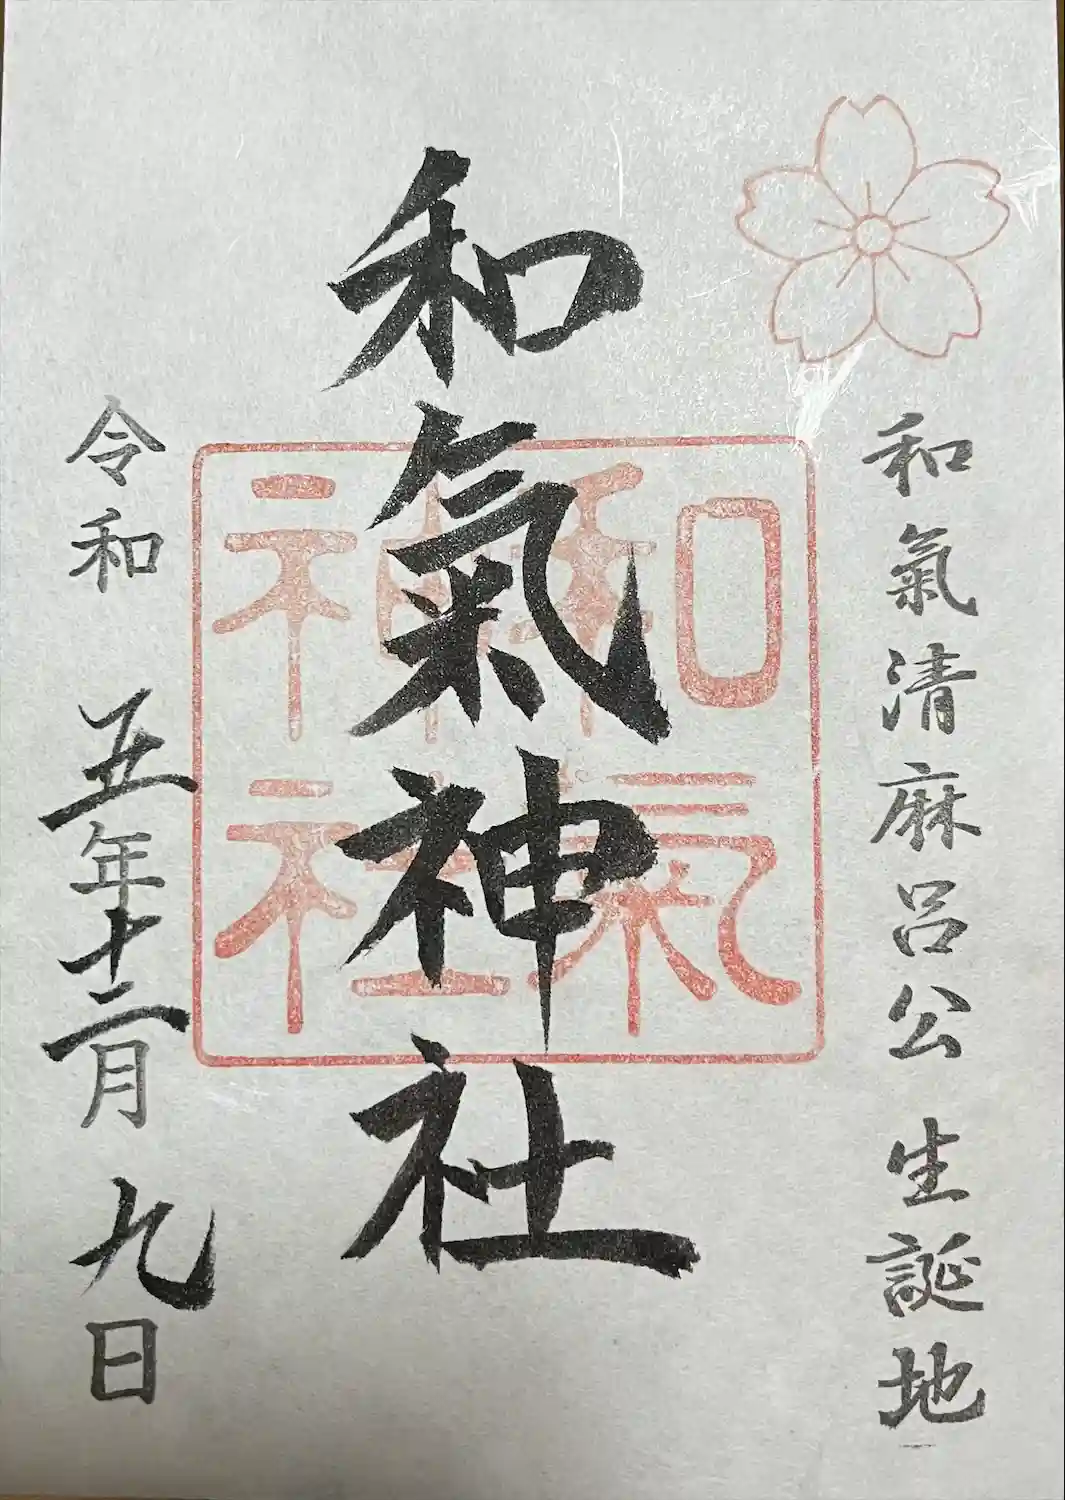 和氣清麻呂公生誕地
和氣神社
和氣
神社
令和五年十二月九日